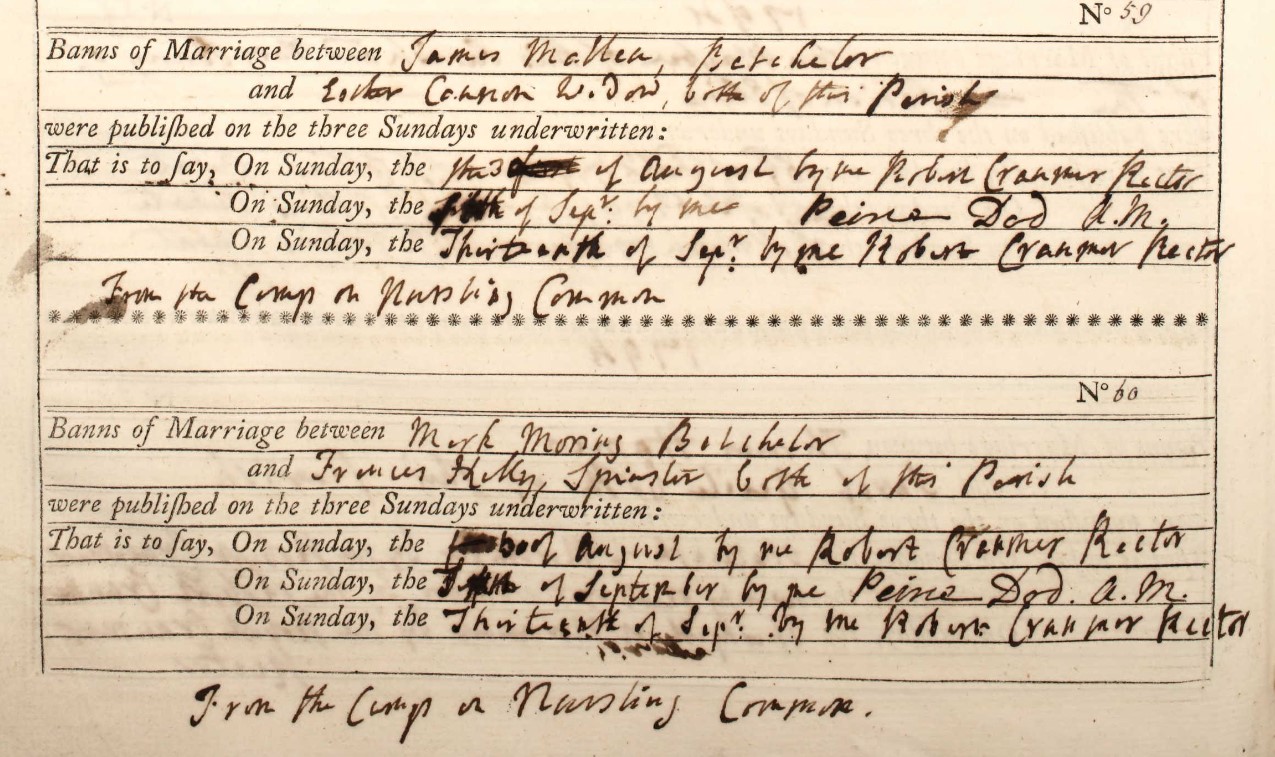 No 59
Banns of Marriage between James Mallen, Batchelor
and Esther Cannon Widow, both of this Parish
were publiſhed on the three Sundays underwritten:
That is to ſay, On Sunday, the of August by me Robert Cranmer Rector
On Sunday, the fifth of Sepr. by me Peirce Dod A.M.
On Sunday, the Thirteenth of Sepr. by me Robert Cranmer Rector
From the Camp on Nursling Common
No 60
Banns of Marriage between Mark Moring Batchelor
and Frances Kelly, Spinster both of this Parish
were publiſhed on the three Sundays underwritten:
That is to ſay, On Sunday, the of August by me Robert Cranmer Rector
On Sunday, the of September by me Peirce Dod. A.M.
On Sunday, the Thirteenth of Sepr. by me Robert Cranmer Rector
From the Camp on Nursling Common.